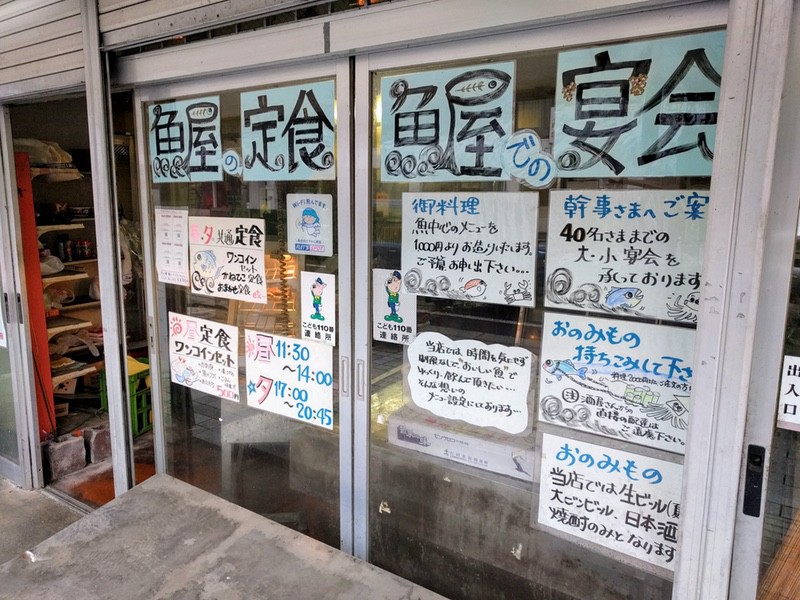 魚屋の定食
魚屋での宴会
昼・夕共通定食
ワンコイン
セット
定食
定食
定食
ワンコインセット
500円
昼11:30
～14:00
☆夕17:00
～20:45
こども110番
連絡所
こども110番
連絡所
御料理
魚中心のメニューを
1,000円よりお造りいたします。
ご予算お申し出下さい…
幹事さまへご案
40名さままでの
大・小宴会を
承っております
当店では、時間を気にせず
制限なしで"おいしい魚"で
ゆっくり、飲んで頂きたい…
そんな想いの
メニュー設定にしております…
おのみもの
持ちこみして下さ
酒屋さんからの
直接の配達は
ご遠慮下さい
おのみもの
当店では生ビール(夏
大ビンビール、日本酒
焼酎のみとなります
出
入
口